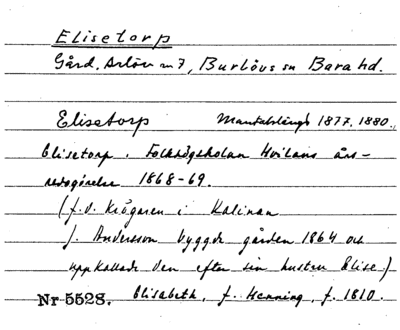 Elisetorp
Gård, Arlöv nr 7, Burlövs sn Bara hd.
Elisetorp Mantalslängd 1877, 1880.,
Elisetorp. Folkhögskolan Hvilans års-
redogörelse 1868-69.
(f.d. krögaren i Kalinan
J. Andersson byggde gården 1864 och
uppkallade den efter sin hustru Elise.)
Nr 5528. Elisabeth, f. Henning, f. 1810.